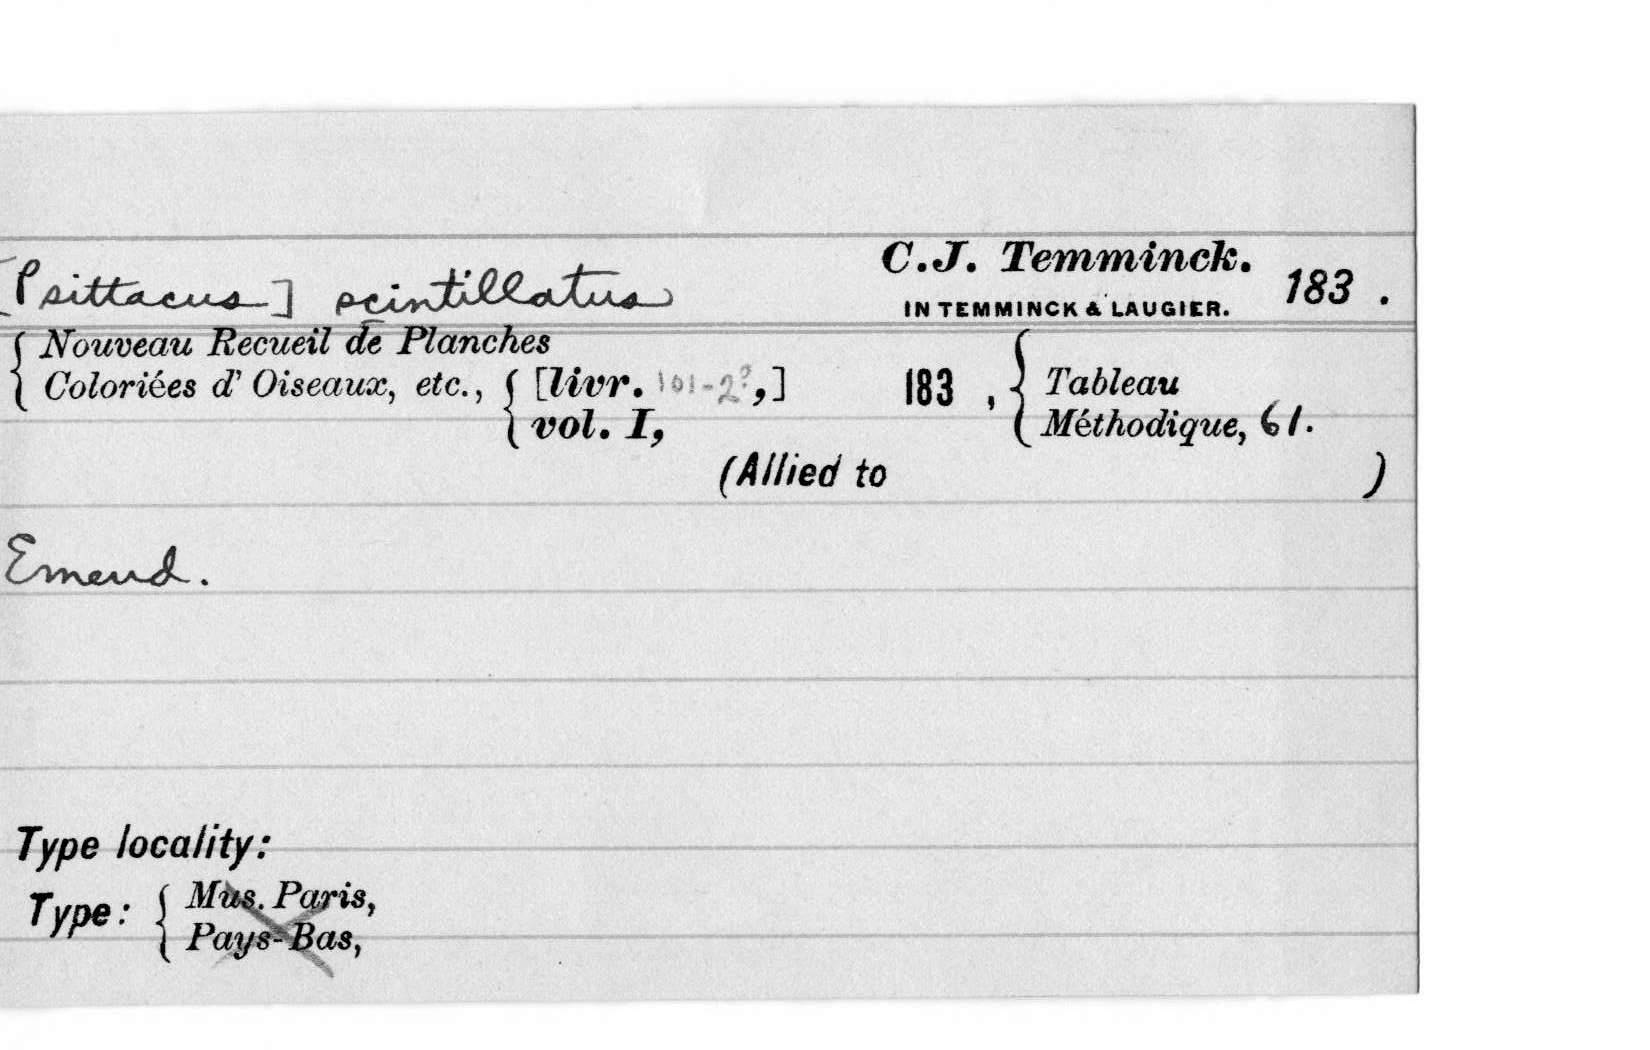 [Psittacus] scintillatus C.J. Temminck. 183 .
IN TEMMINCK & LAUGIER.
Nouveau Recueil de Planches
Coloriées d' Oiseaux, etc., [livr. 101-2?,] 183 , Tableau
vol. I, Méthodique, 61.
(Allied to )
Emend.
Type locality:
Type: Mus. Paris,
Pays-Bas,